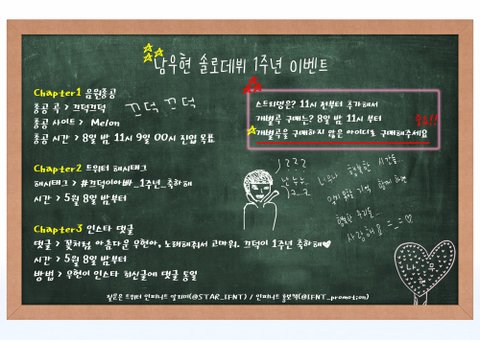 남우현 솔로데뷔 1주년 이벤트
Chapter1 음원총공
총공 곡 > 끄덕끄덕
총공 사이트 > Melon
총공 시간 > 8일 밤 11시 9일 00시 진입 목표
끄덕 끄덕
스트리밍은? 11시 전부터 추가해서
개별곡 구매는? 8일 밤 11시 부터
중요!!
개별곡을 구매하지 않은 아이디로 구매해주세요
Chapter2 트위터 해시태그
해시태그 > #끄덕이아빠_1주년_축하해
시간 > 5월 8일 밤부터
Chapter3 인스타 댓글
댓글 > 꽃처럼 아름다운 우현아, 노래해줘서 고마워. 끄덕이 1주년 축하해♥
시간 > 5월 8일 밤부터
방법 > 우현이 인스타 최신글에 댓글 통일
너무나 행복한 시간들
행복한 우리들
사랑해요
나
우
질문은 트위터 인피니트 알리미(@STAR_IFNT) / 인피니트 홍보척(@IFNT_promotion)